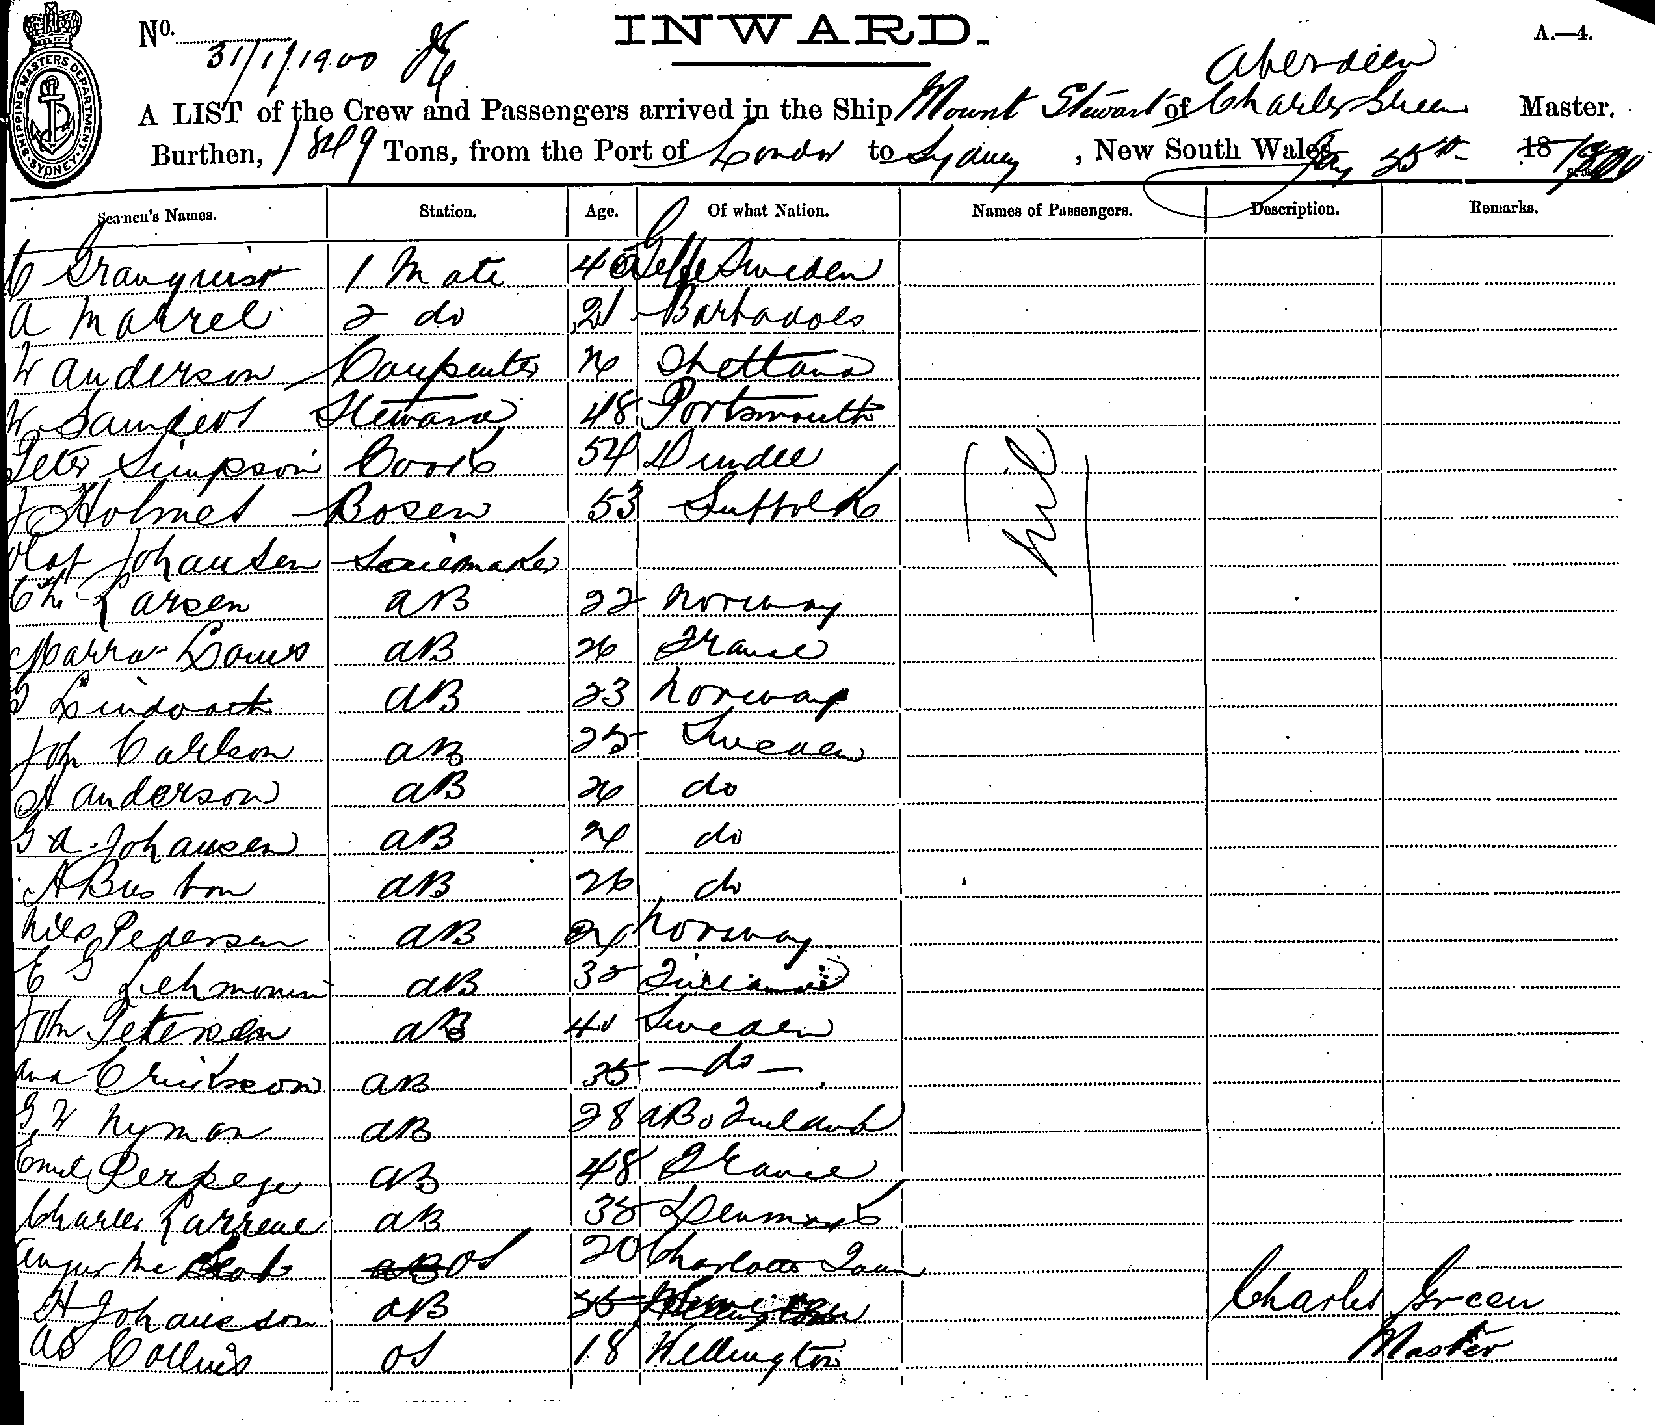 No. 31/1/1900
INWARD.
A.—4.
SHIPPING MASTERS DEPARTMENT SYDNEY
Aberdeen
A LIST of the Crew and Passengers arrived in the Ship Mount Stewart of Charles Green Master.
Burthen, 1849 Tons, from the Port of London to Sydney, New South Wales Jany 25th 1900
Seamen's Names. Station. Age. Of what Nation. Names of Passengers. Description. Remarks.
C Granquist 1 Mate 40 Gefle Sweden
A Marrel 2 do 21 Barbadoes
W Anderson Carpenter 26 Shetland
W Saunders Steward 48 Portsmouth
Peter Simpson Cook 54 Dundee
J Holmes Bosen 53 Suffolk
Nil
Olaf Johansen Sailemaker
Ch Larsen AB 22 Norway
Louis AB 26 France
AB 23 Norway
Joh Carlson AB 25 Sweden
A Anderson AB 26 do
G A Johansen AB 24 do
A AB 26 do
Nils Pedersen AB 24 Norway
E G AB 32
John Petersen AB 40 Sweden
And Erickson AB 35 —do—
G W Nyman AB 28 ABo Finland
Emil AB 48 France
Charles AB 38 Denmark
Angus Mc AB OS 20 Charlotte Town
H Johansson AB 35
AS Collins OS 18 Wellington
Charles Green
Master